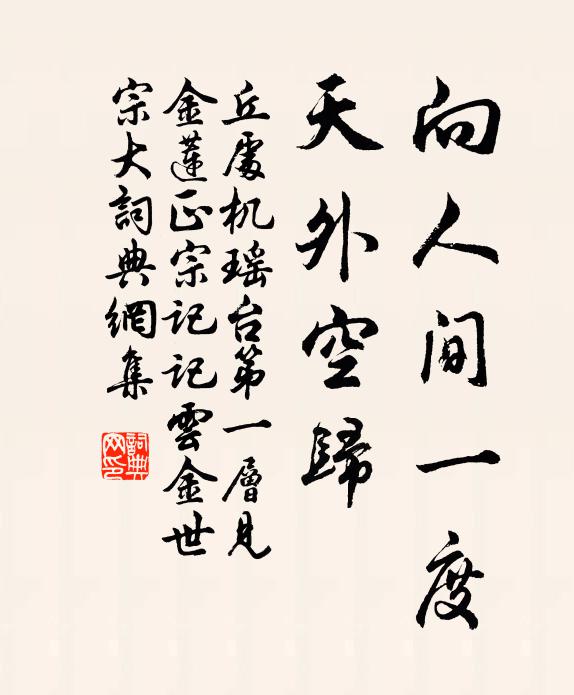 向人間一度
天外空歸
丘處机瑶台第一層見
金蓮正宗記記雲金世
宗大詞典網集
詞典
网印